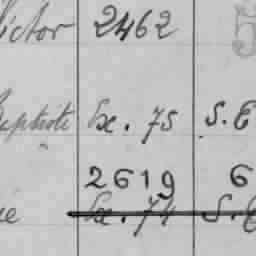 ictor 2462 5
aptiste Ex. 75 S. E
2619 6
ue Ex. 74 S. E